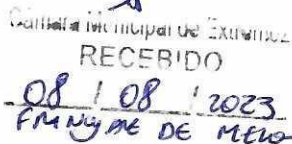 Câmara Municipal de Extremoz
RECEBIDO
08 / 08 / 2023
DE MELO